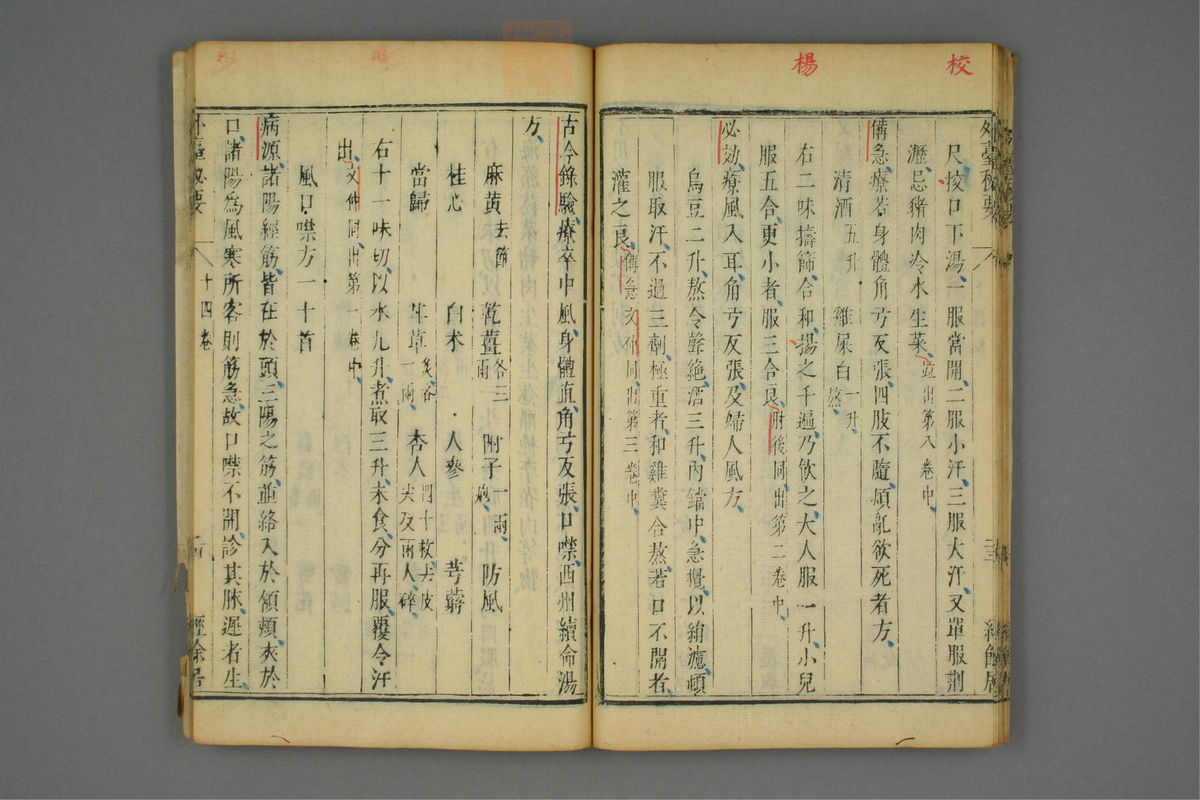 校
楊
尺按口下湯一服當開二服小汗三服大汗又單服荆
瀝忌豬肉冷水生菜並出第八卷中
備急療若身體角弓反張四肢不隨煩亂欲死者方
清酒五升 雞屎白一升熬
右二味擣篩合和揚之千遍乃飲之大人服一升小兒
服五合更小者服三合良肘後同出第二卷中
必効療風入耳角弓反張及婦人風方
烏豆二升熬令聲絕酒三升內鐺中急攪以絹濾頓
服取汗不過三劑極重者和雞糞合熬若口不開者
灌之良備急文仲同出第三卷中
古今錄驗療卒中風身體直角弓反張口噤西州續命湯
方
麻黃去節 乾薑各三兩 附子一兩炮 防風
桂心 白术 人參 芎藭
當歸 甘草炙各一兩 杏人四十枚去皮尖及兩人碎
右十一味切以水九升煮取三升未食分再服覆令汗
出文仲同出第一卷中
風口噤方一十首
病源諸陽經筋皆在於頭三陽之筋並絡入於頷頰夾於
口諸陽為風寒所客則筋急故口噤不開診其脉遲者生
外臺秘要 十四卷 經餘居